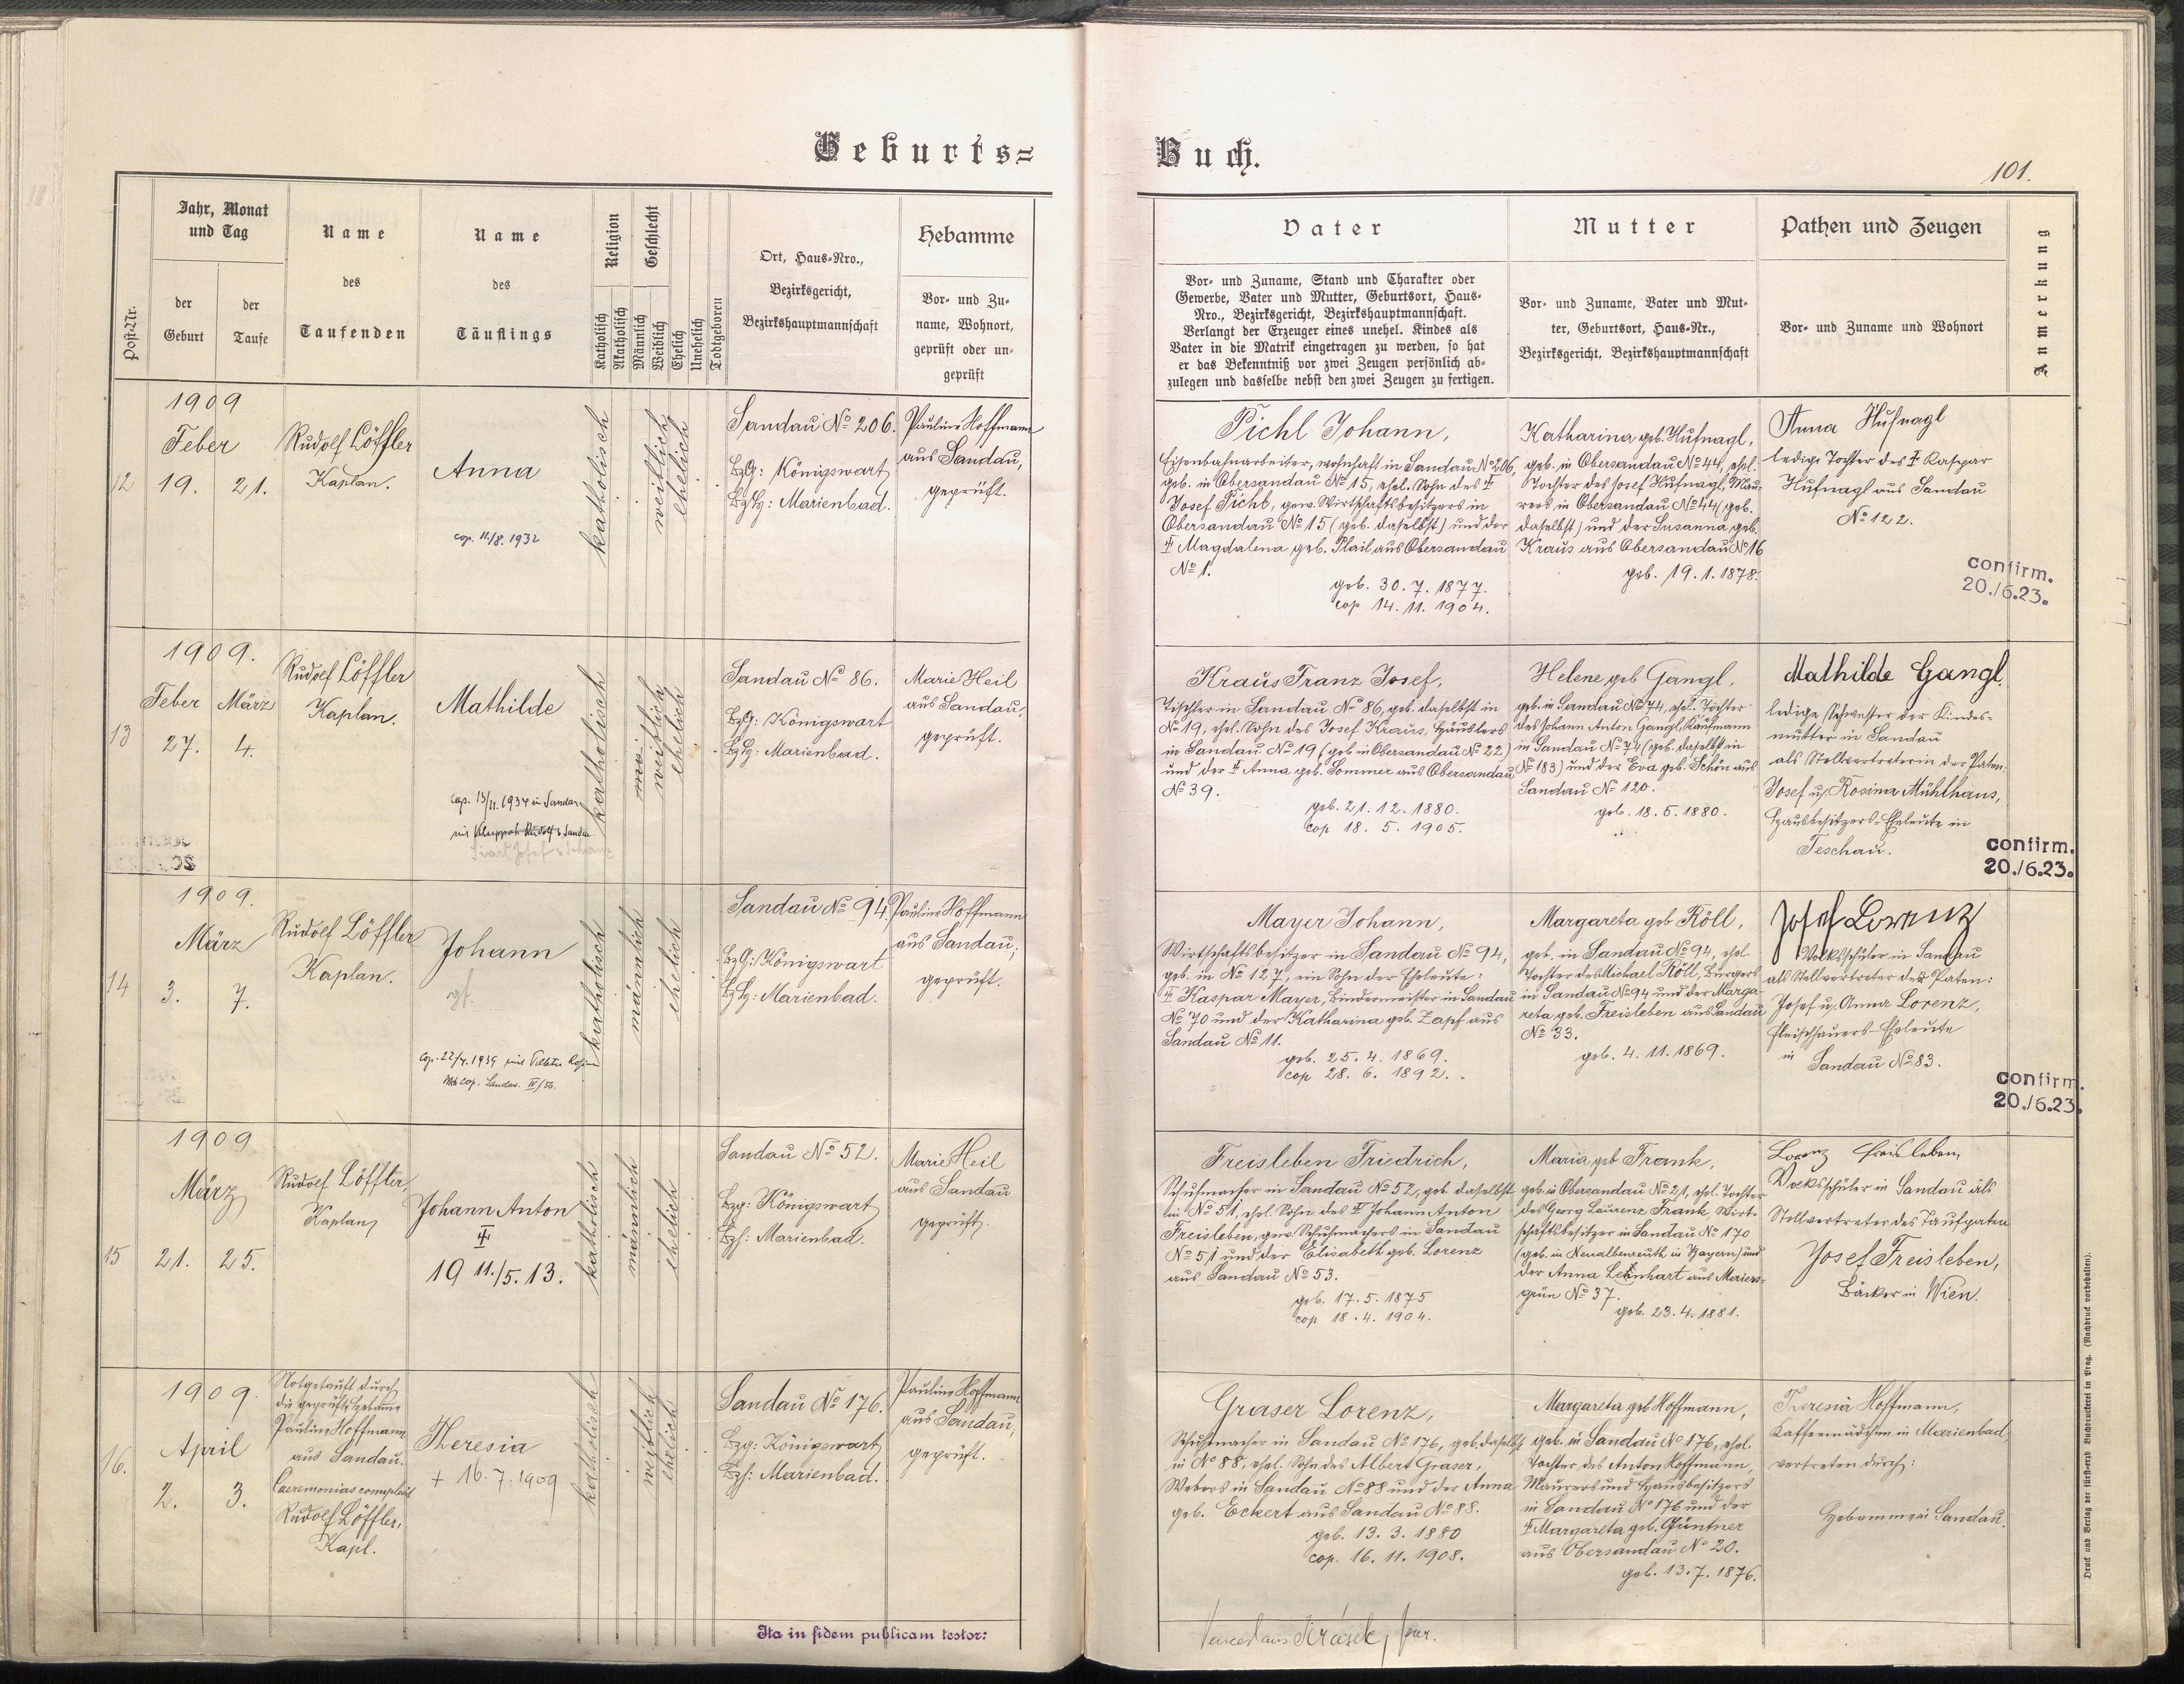 Geburts=
Buch.
101.
Post-Nr.
Jahr, Monat
und Tag
der
Geburt
der
Taufe
Name
des
Taufenden
Name
des
Täuflings
Religion
Katholisch
Akatholisch
Geschlecht
Männlich
Weiblich
Ehelich
Unehelich
Todtgeboren
Ort, Haus-Nro.,
Bezirksgericht,
Bezirkshauptmannschaft
Hebamme
Vor- und Zu-
name, Wohnort,
geprüft oder un-
geprüft
Vater
Vor- und Zuname, Stand und Charakter oder
Gewerbe, Vater und Mutter, Geburtsort, Haus-
Nro., Bezirksgericht, Bezirkshauptmannschaft.
Verlangt der Erzeuger eines unehel. Kindes als
Vater in die Matrik eingetragen zu werden, so hat
er das Bekenntniß vor zwei Zeugen persönlich ab-
zulegen und dasselbe nebst den zwei Zeugen zu fertigen.
Mutter
Vor- und Zuname, Vater und Mut-
ter, Geburtsort, Haus-Nr.,
Bezirksgericht, Bezirkshauptmannschaft
Pathen und Zeugen
Vor- und Zuname und Wohnort
Anmerkung
12
1909
Feber
19. 21.
Rudolf Löffler
Kaplan.
Anna
cop. 11/8. 1932
katholisch
weiblich
ehelich
Sandau No 206.
BzG: Königswart
BzH: Marienbad.
Pauline Hoffmann
aus Sandau,
geprüft.
Pichl Johann,
Eisenbahnarbeiter, wohnhaft in Sandau No 206,
geb. in Obersandau No 15, ehel. Sohn des ‡
Josef Pichl, gew. Wirtschaftsbesitzers in
Obersandau No 15 (geb. daselbst) und der
‡ Magdalena geb. Plail aus Obersandau
No 1.
geb. 30. 7. 1877.
cop 14. 11. 1904.
Katharina geb. Hufnagl,
geb. in Obersandau No 44, ehel.
Tochter des Josef Hufnagl, Mau-
rers in Obersandau No 44 (geb.
daselbst) und der Susanna geb.
Kraus aus Obersandau No 16
geb. 19. 1. 1878.
Anna Hufnagl
ledige Tochter des ‡ Kaspar
Hufnagl aus Sandau
No 122.
confirm.
20./6.23.
13
1909.
Feber März
27. 4.
Rudolf Löffler
Kaplan.
Mathilde
cop. 13/11. 1934 in Sandau
katholisch
weiblich
ehelich
Sandau No 86.
BzG: Königswart
BzH: Marienbad.
Marie Heil
aus Sandau,
geprüft.
Kraus Franz Josef,
Tischler in Sandau No 86, geb. daselbst in
No 19, ehel. Sohn des Josef Kraus, Häuslers
in Sandau No 19 (geb. in Obersandau No 22)
und der ‡ Anna geb. Sommer aus Obersandau
No 39.
geb. 21. 12. 1880.
cop 18. 5. 1905.
Helene geb Gangl,
geb. in Sandau No 74, ehel. Tochter
des Johann Anton Gangl, Kaufmann
in Sandau No 74 (geb. daselbst in
No 183) und der Eva geb. Schön aus
Sandau No 120.
geb. 18. 5. 1880.
Mathilde Gangl,
ledige Schwester der Kindes-
mutter in Sandau
als Stellvertreterin der Paten:
Josef u. Rosina Mühlhaus,
Hausbesitzers-Eheleute in
Teschau.
confirm.
20./6.23.
14
1909.
März
3. 7.
Rudolf Löffler
Kaplan.
Johann
katholisch
männlich
ehelich
Sandau No 94.
BzG: Königswart
BzH: Marienbad.
Pauline Hoffmann
aus Sandau,
geprüft.
Mayer Johann,
Wirtschaftsbesitzer in Sandau No 94,
geb. in No 127, ein Sohn der Eheleute:
‡ Kaspar Mayer, Bindermeister in Sandau
No 70 und der Katharina geb. Zapf aus
Sandau No 11.
geb. 25. 4. 1869.
cop 28. 6. 1892.
Margareta geb Röll,
geb. in Sandau No 94, ehel.
Tochter des Michael Röll, Bürgers
in Sandau No 94 und der Marga-
reta geb. Freisleben aus Sandau
No 33.
geb. 4. 11. 1869.
Josef Lorenz
Volksschüler in Sandau
als Stellvertreter der Paten:
Josef u. Anna Lorenz,
Fleischhauers-Eheleute
in
Sandau No 83.
confirm.
20./6.23.
15
1909
März
21. 25.
Rudolf Löffler,
Kaplan
Johann Anton
‡
19 11./5. 13.
katholisch
männlich
ehelich
Sandau No 52.
Bzg: Königswart
Bzh: Marienbad.
Marie Heil
aus Sandau
geprüft.
Freisleben Friedrich,
Schuhmacher in Sandau No 52, geb. daselbst
in No 51, ehel. Sohn des ‡ Johann Anton
Freisleben, gew. Schuhmachers in Sandau
No 51 und der Elisabeth geb. Lorenz
aus Sandau No 53.
geb. 17. 5. 1875
cop 18. 4. 1904.
Maria geb Frank,
geb. in Obersandau No 21, ehel. Tochter
des Georg Laurenz Frank, Wirt-
schaftsbesitzer in Sandau No 170
(geb. in Neualbenreuth in Bayern) und
der Anna Leinhart aus Maiers-
grün No 37.
geb. 23. 4. 1881.
Lorenz Freisleben,
Volksschüler in Sandau als
Stellvertreter des Taufpaten
Josef Freisleben,
Bäcker in Wien.
16.
1909.
April
2. 3.
Notgetauft durch
die geprüfte Hebamme
Pauline Hoffmann
aus Sandau.
Caeremonias complevit
Rudolf Löffler,
Kapl.
Theresia
+ 16. 7. 1909
katholisch
weiblich
ehelich
Sandau No 176.
Bzg: Königswart
Bzh: Marienbad.
Pauline Hoffmann
aus Sandau,
geprüft.
Graser Lorenz,
Schuhmacher in Sandau No 176, geb. daselbst
in No 88, ehel. Sohn des Albert Graser,
Webers in Sandau No 88 und der Anna
geb. Eckert aus Sandau No 88.
geb. 13. 3. 1880
cop. 16. 11. 1908.
Margareta geb Hoffmann,
geb. in Sandau No 176, ehel.
Tochter des Anton Hoffmann,
Maurers und Hausbesitzers
in Sandau No 176 und der
‡ Margareta geb. Güntner
aus Obersandau No 20.
geb. 13. 7. 1876.
Theresia Hoffmann,
Kaffeemädchen in Marienbad,
vertreten durch:
Hebamme in Sandau.
Ita in fidem publicam testor:
Druck und Verlag der fürsterzb. Buchdruckerei in Prag. (Nachdruck vorbehalten).